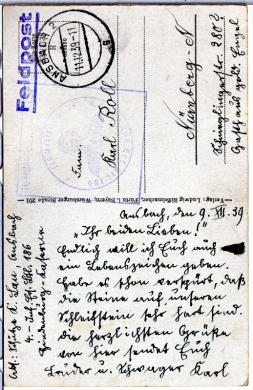 Feldpost
ANSBACH 2
11.12.39.-11
Fam.
Karl Roll
Nürnberg-N
Schweppermannstr. 280
Gasthaus gold. Engel
Verlag: Ludwig Riffelmacher, Fürth i. Bayern, Würzburger Straße 201
Ansbach, den 9. XII. 39
„Ihr beiden Lieben!"
Endlich will ich Euch auch
ein Lebenszeichen geben.
Habe es schon verspürt, daß
die Steine auf unserem
Schleifstein sehr hart sind.
Die herzlichsten Grüße
von hier sendet Euch
Bruder u. Schwager Karl
Abs.: Schütze K. Ansbach
4.
Hindenburg-Kaserne